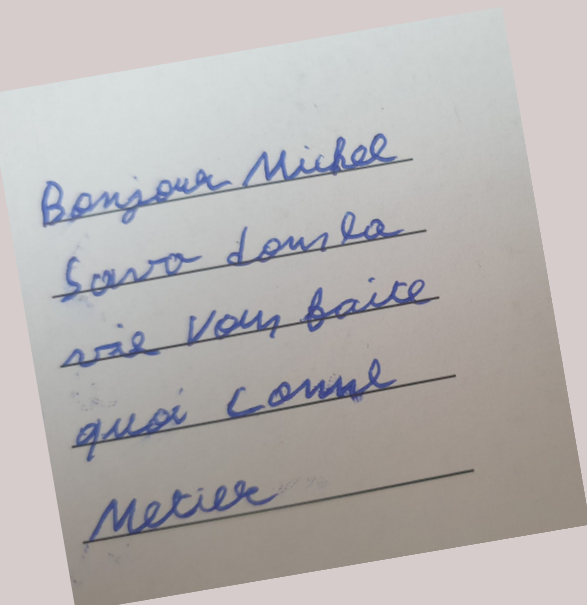 Bonjour Michel
Sava dans la
vie Vous faite
quoi comme
Metier